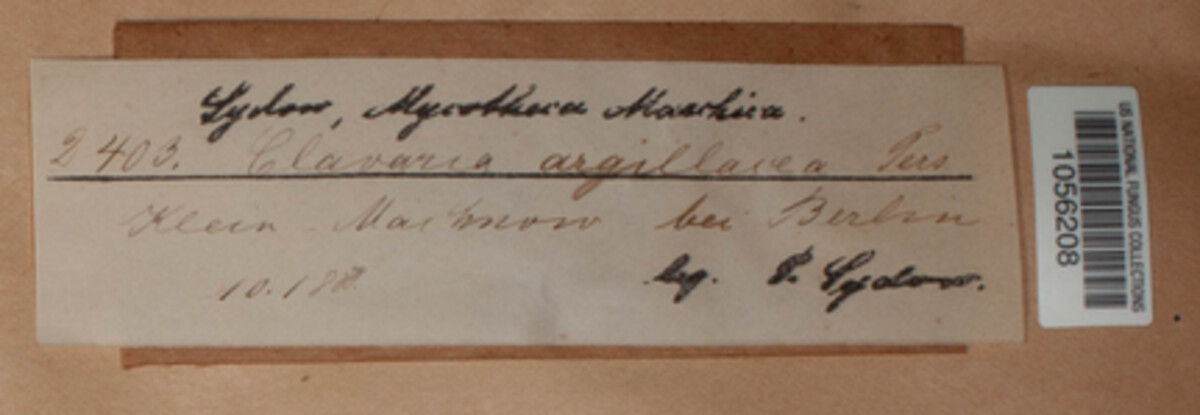 Sydow, Mycotheca Marchica.
2403. Clavaria argillacea Pers
Klein Machnow bei Berlin
10.188
leg. P. Sydow.
US NATIONAL FUNGUS COLLECTIONS
1056208